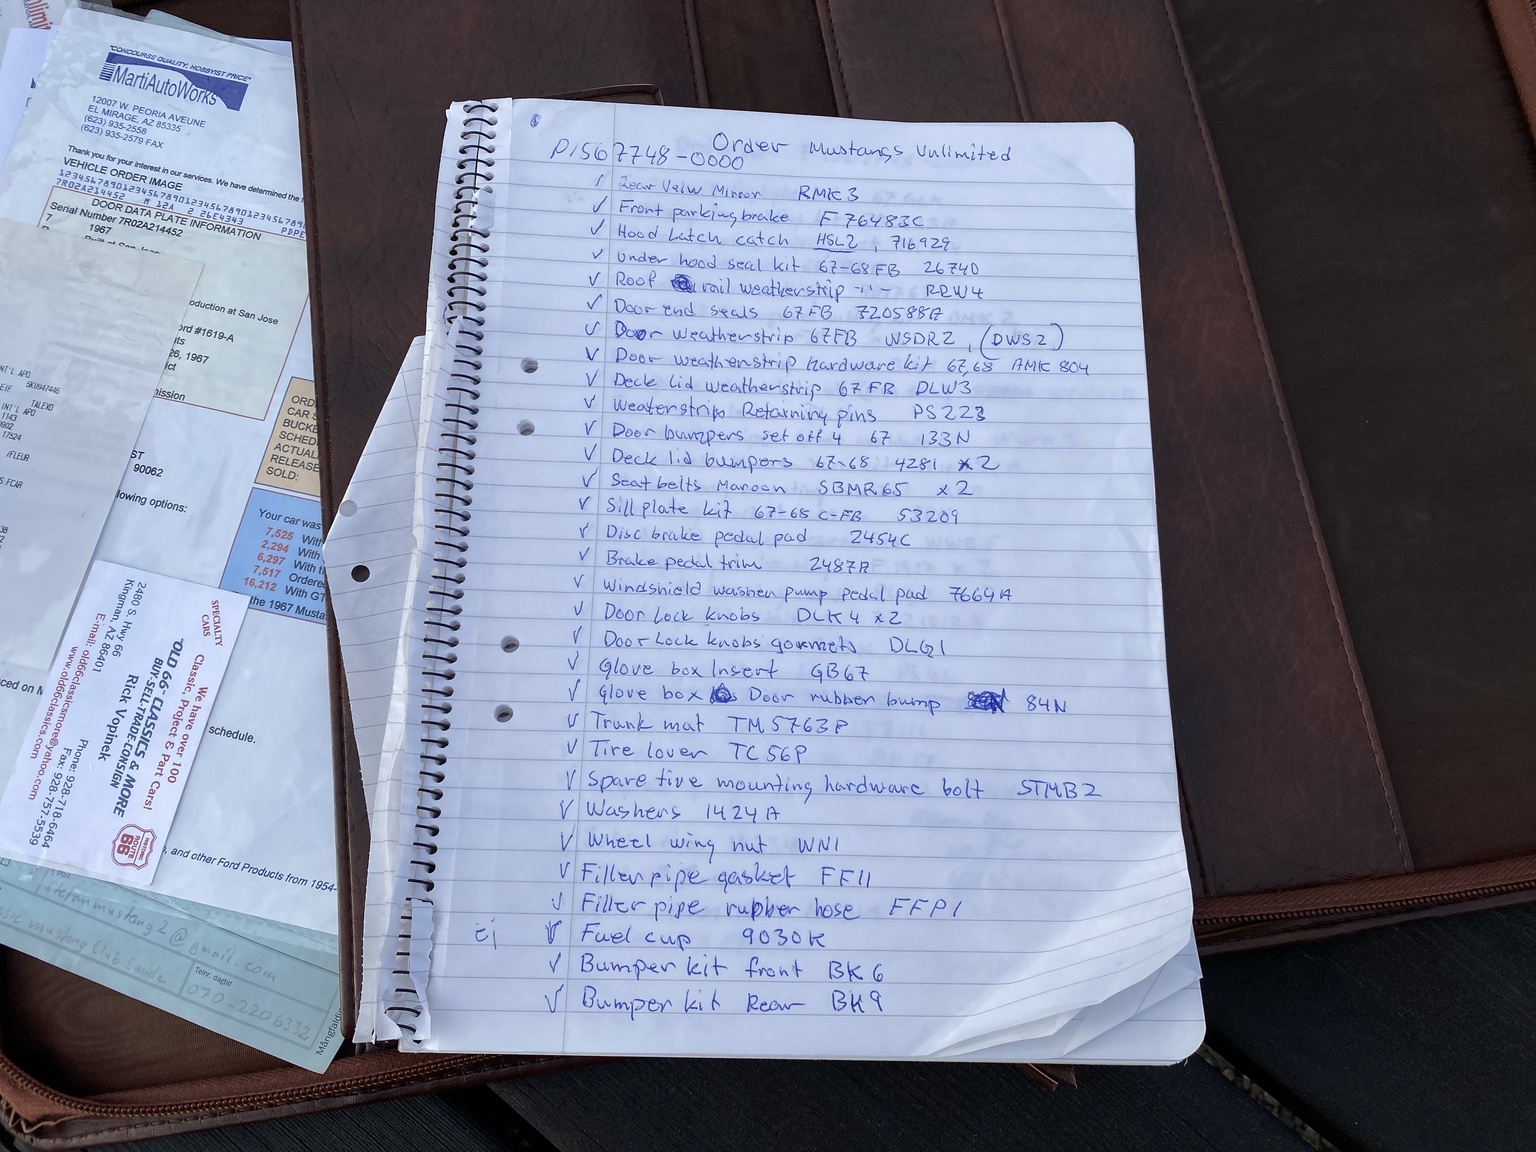 "CONCOURSE QUALITY, HOBBYIST PRICE"
MartiAutoWorks
12007 W. PEORIA AVEUNE
EL MIRAGE, AZ 85335
(623) 935-2558
(623) 935-2579 FAX
Thank you for your interest in our services. We have determined the
VEHICLE ORDER IMAGE
DOOR DATA PLATE INFORMATION
Serial Number 7R02A214452
7
1967
oduction at San Jose
ord #1619-A
26, 1967
ission
ORD
CAR S
BUCK
SCHED
ACTUAL
RELEASE
SOLD:
90062
lowing options:
Your car was
7,525 With
2,294 With
6,297 With t
7,517 Ordere
16,212 With GT
the 1967 Musta
schedule.
, and other Ford Products from 1954-
SPECIALTY
CARS
We have over 100
Classic, Project & Part Cars!
"OLD 66" CLASSICS & MORE
BUY-SELL-TRADE-CONSIGN
Rick Vopinek
2480 S. Hwy 66
Kingman, AZ 86401
Phone: 928-718-6464
Fax: 928-757-5539
E-mail: old66classicsmore@yahoo.com
www.old66classics.com
ROUTE
66
stefanmustang2@gmail.com
Telnr. dagtid
070-2206332
Order Mustangs Unlimited
P1567748-0000
✓ Rear Veiw Mirror RMK3
✓ Front parkingbrake F76483C
✓ Hood Latch catch HSL2, 716929
✓ Under hood seal kit 67-68 FB 26740
✓ Roof rail weatherstrip -"- RRW4
✓ Door end seals 67 FB 720588A
✓ Door weatherstrip 67FB WSDR2, (DWS2)
✓ Door weatherstrip hardware kit 67,68 AMK 804
✓ Deck lid weatherstrip 67 FB DLW3
✓ Weaterstrip Retaining pins PS223
✓ Door bumpers set off 4 67 133N
✓ Deck lid bumpers 67-68 4281 x2
✓ Seat belts Maroon SBMR65 x2
✓ Sill plate kit 67-68 C-FB 53209
✓ Disc brake pedal pad 2454C
✓ Brake pedal trim 2487A
✓ Windshield washer pump pedal pad 7664A
✓ Door Lock knobs DLK4 x2
✓ Door Lock knobs gommets DLG1
✓ Glove box Insert GB67
✓ Glove box Door rubber bump 84N
✓ Trunk mat TM5763P
✓ Tire Cover TC56P
✓ Spare tire mounting hardware bolt STMB2
✓ Washers 1424A
✓ Wheel wing nut WN1
✓ Filler pipe gasket FF11
✓ Filler pipe rubber hose FFP1
ej ✓ Fuel cup 9030K
✓ Bumper kit front BK6
✓ Bumper kit Rear BK9